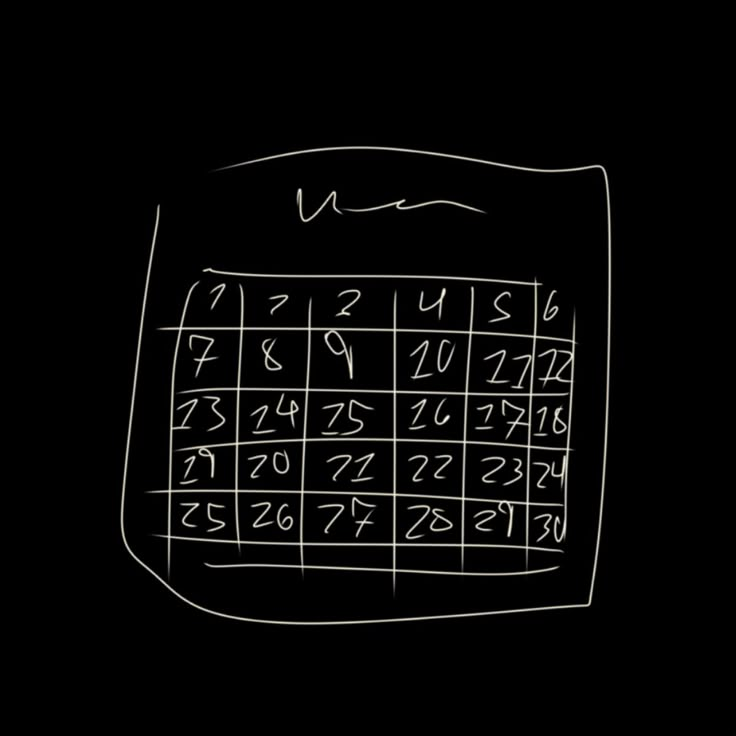 1 2 3 4 5 6
7 8 9 10 11 12
13 14 15 16 17 18
19 20 21 22 23 24
25 26 27 28 29 30